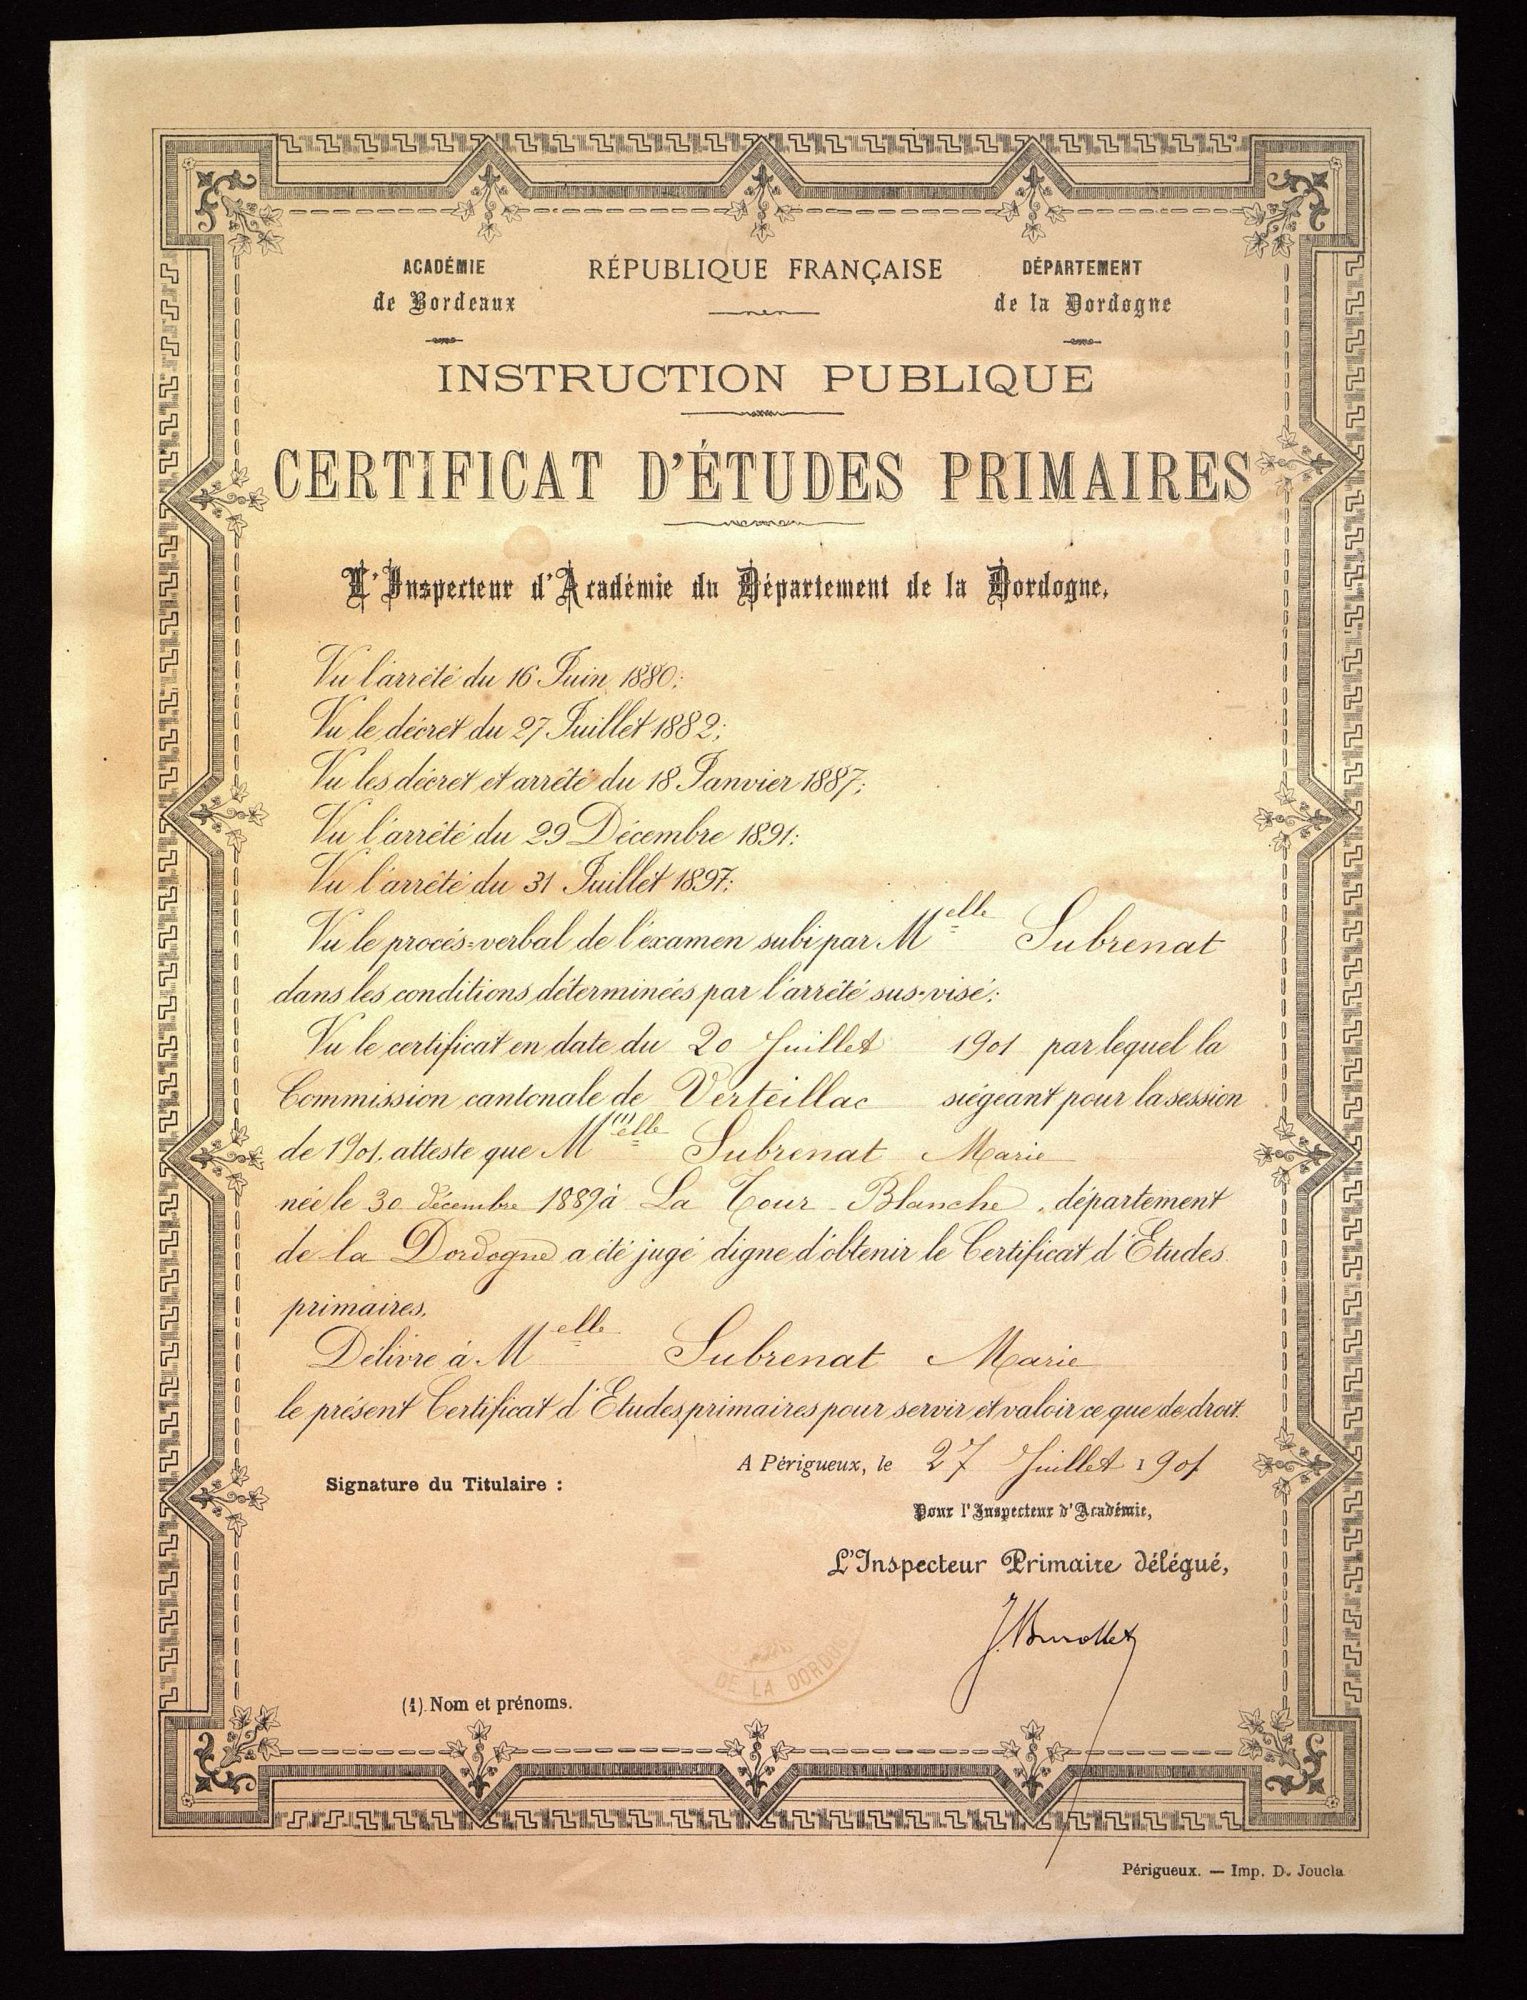 ACADÉMIE
de Bordeaux
RÉPUBLIQUE FRANÇAISE
DÉPARTEMENT
de la Dordogne
INSTRUCTION PUBLIQUE
CERTIFICAT D'ÉTUDES PRIMAIRES
L'Inspecteur d'Académie du Département de la Dordogne,
Vu l'arrêté du 16 Juin 1880;
Vu le décret du 27 Juillet 1882;
Vu les décret et arrêté du 18 Janvier 1887;
Vu l'arrêté du 29 Décembre 1891;
Vu l'arrêté du 31 Juillet 1897;
Vu le procès-verbal de l'examen subi par Melle Subrenat
dans les conditions déterminées par l'arrêté sus-visé;
Vu le certificat en date du 20 Juillet 1901 par lequel la
Commission cantonale de Verteillac siégeant pour la session
de 1901, atteste que M(1)elle Subrenat Marie
née le 30 décembre 1889 à La Tour-Blanche, département
de la Dordogne a été jugé digne d'obtenir le Certificat d'Etudes
primaires.
Délivré à Melle Subrenat Marie
le présent Certificat d'Etudes primaires pour servir et valoir ce que de droit.
A Périgueux, le 27 Juillet 1901
Signature du Titulaire :
Pour l'Inspecteur d'Académie,
L'Inspecteur Primaire délégué,
DE LA DORDOG
(1) Nom et prénoms.
Périgueux. — Imp. D. Joucla